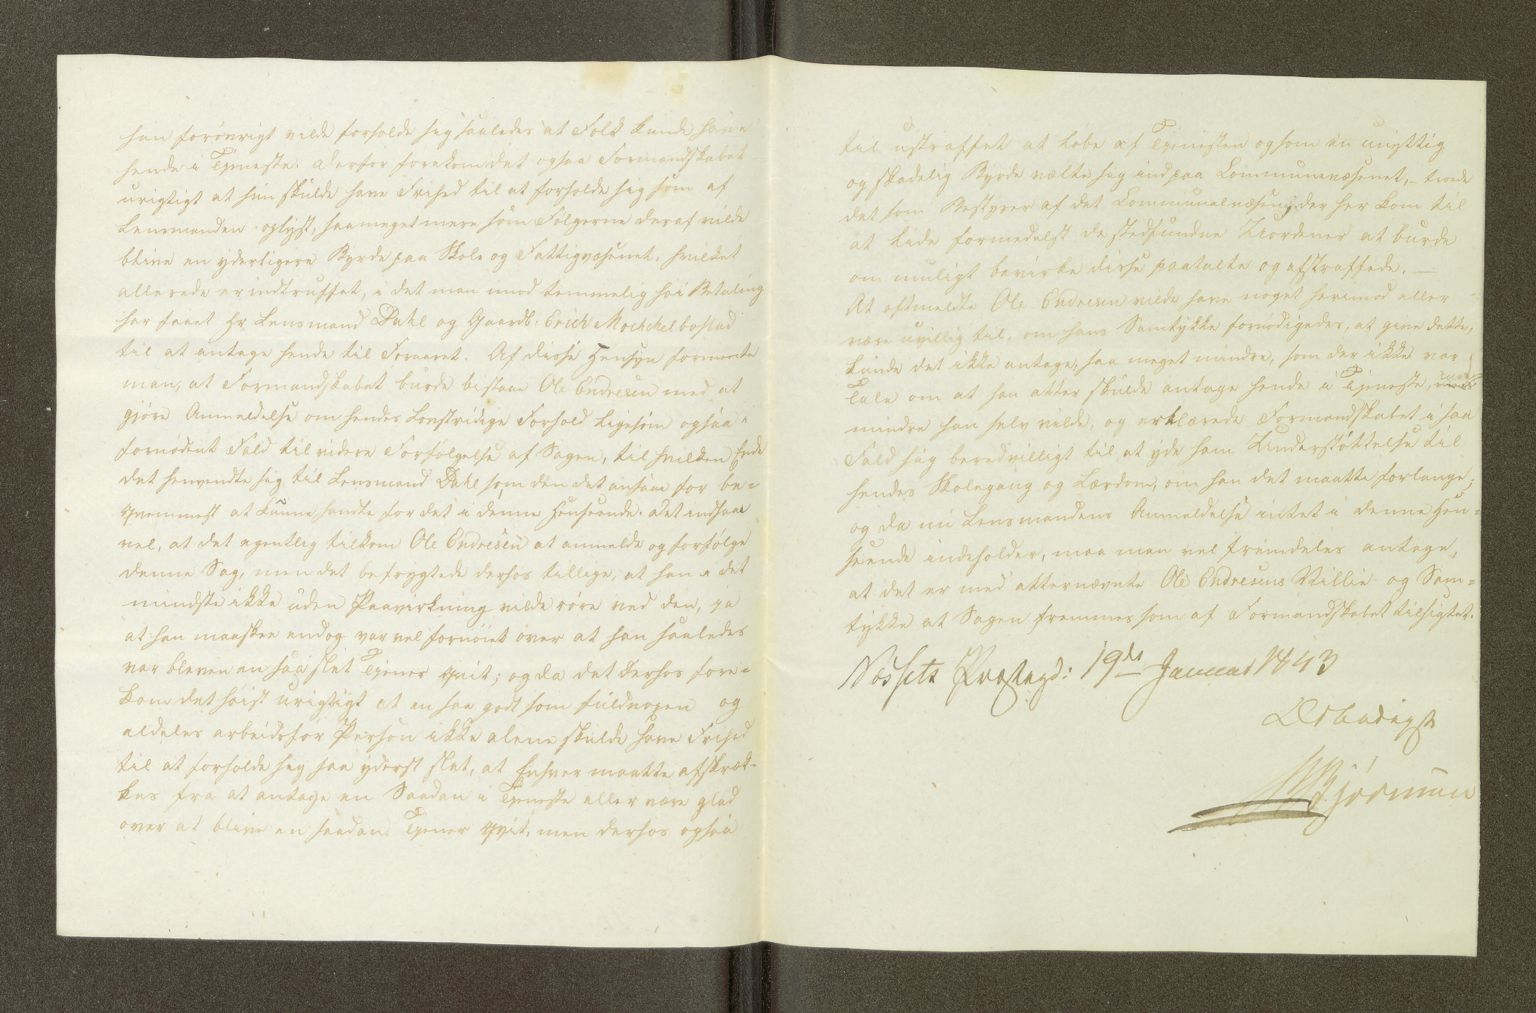 han forøvrigt vilde forholde sig saaledes at Folk kunde have
hende i Tjeneste. Derfor forekom det ogsaa Formandskabet
urigtigt at hun skulde have Frihed til at forholde sig som af
Lensmanden oplyst, saameget mere som Følgerne deraf vilde
blive en yderligere Byrde paa Skole og Fattigvæsenet, hvilket
allerede er indtruffet, i det man imod temmelig høi Betaling
har faaet Hr. Lensmand Dahl og Gaardb. Erich Mochkelbostad
til at antage hende til Forvaret. Af disse Hensyn formeente
man, at Formandskabet burde bistaae Ole Endresen med at
gjøre Anmeldelse om hendes Lovstridige Forhold ligesom ogsaa i
fornødent Fald til videre Forfølgelse af Sagen, til hvilken Ende
det henvendte sig til Lensmand Dahl som den det ansaae for be-
qvemmest at kunne handle for det i denne Henseende. Det indsaae
vel, at det egentlig tilkom Ole Endresen at anmelde og forfølge
denne Sag, men det befrygtede derhos tillige, at han i det
mindste ikke uden Paavirkning vilde røre ved den, ja
at han maaskee endog var vel fornøiet over at han saaledes
var bleven en saa slet Tjener qvit; og da det derhos fore-
kom det høist urigtigt at en saa godt som fuldvoxen og
aldeles arbeidsfør Person ikke alene skulde have Frihed
til at forholde sig saa yderst slet, at Enhver maatte afskræk-
kes fra at antage en Saadan i Tjeneste eller være glad
over at blive en saadan Tjener qvit, men derhos ogsaa
til ustraffet at løbe af Tjenesten og som en unyttig
og skadelig Byrde vælte sig ind paa Communevæsenet, – troede
det som Bestyrer af det Communalvæsen, der her kom til
at lide formedelst de stedfundne Uordener at burde
om muligt bevirke disse paatalte og afstraffede. —
At oftmeldte Ole Endresen vilde have noget herimod eller
være uvillig til, om hans Samtykke fornødigedes, at give dette,
kunde det ikke antage, saa meget mindre, som der ikke var
Tale om at han atter skulde antage hende i Tjeneste, med
mindre han selv vilde, og erklærede Formandskabet i saa
Fald sig beredvilligt til at yde ham Understøttelse til
hendes Skolegang og Lærdom, om han det maatte forlange;
og da nu Lensmandens Anmeldelse intet i denne Hen-
seende indeholder, maa man vel fremdeles antage,
at det er med atternævnte Ole Endresens Villie og Sam-
tykke at Sagen fremmes som af Formandskabet tilsigtet.
Næssets Præstegd: 19de Januar 1843
Ærbødigst
Bjørnson